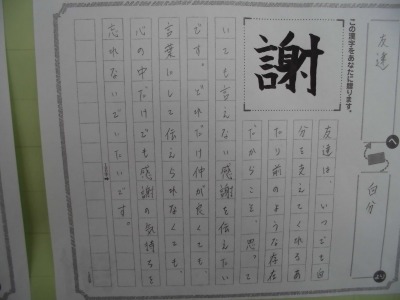 友達
へ
自分
より
この漢字をあなたに贈ります。
謝
友達は、いつでも自
分を支えてくれるあ
たり前のような存在
だからこそ、思って
いても言えない感謝を伝えたい
です。どれだけ仲が良くても、
言葉にして伝えられなくても、
心の中だけでも感謝の気持ちを
忘れないでいたいです。